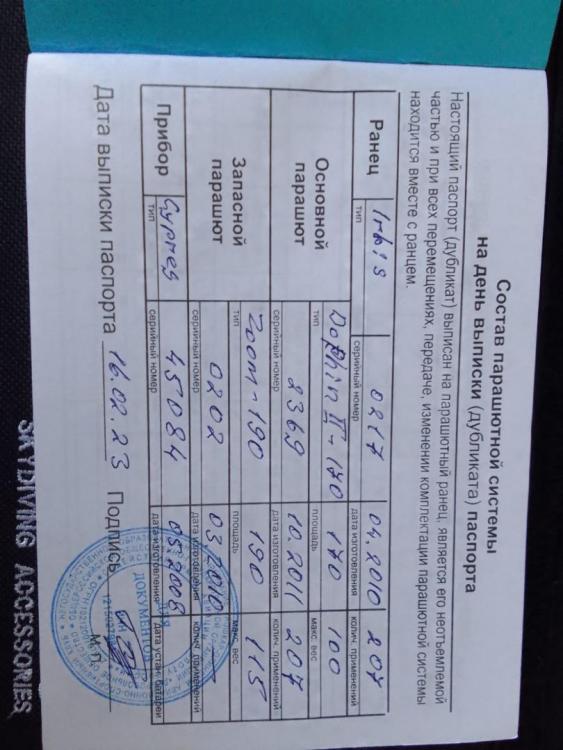 Состав парашютной системы
на день выписки (дубликата) паспорта
Настоящий паспорт (дубликат) выписан на парашютный ранец, является его неотъемлемой
частью и при всех перемещениях, передаче, изменении комплектации парашютной системы
находится вместе с ранцем.
Ранец Irbis 0217 04.2010 207
тип серийный номер дата изготовления колич. применений
Основной парашют Dolphin II-170 170 100
тип площадь макс. вес
2369 10.2011 207
серийный номер дата изготовления колич. применений
Запасной парашют Zoom-190 190 115
тип площадь макс. вес
0202 03.2010
серийный номер дата изготовления колич. применений
Прибор Cypres 45084 05.2008
тип серийный номер дата изготовления дата устан. батареи
Дата выписки паспорта 16.02.23 Подпись
М.П.
ДОКУМЕНТОВ
SKYDIVING ACCESSORIES